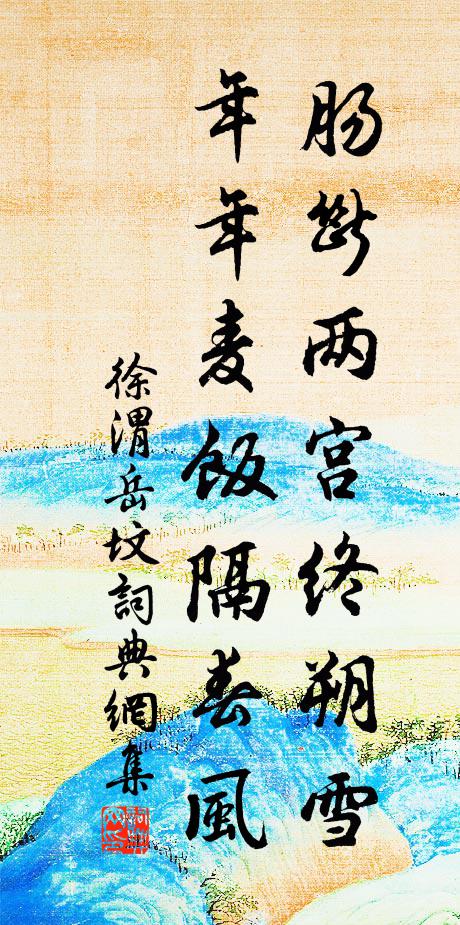 肠断两宫终朔雪
年年麦飯隔春風
徐渭岳坟詞典網集